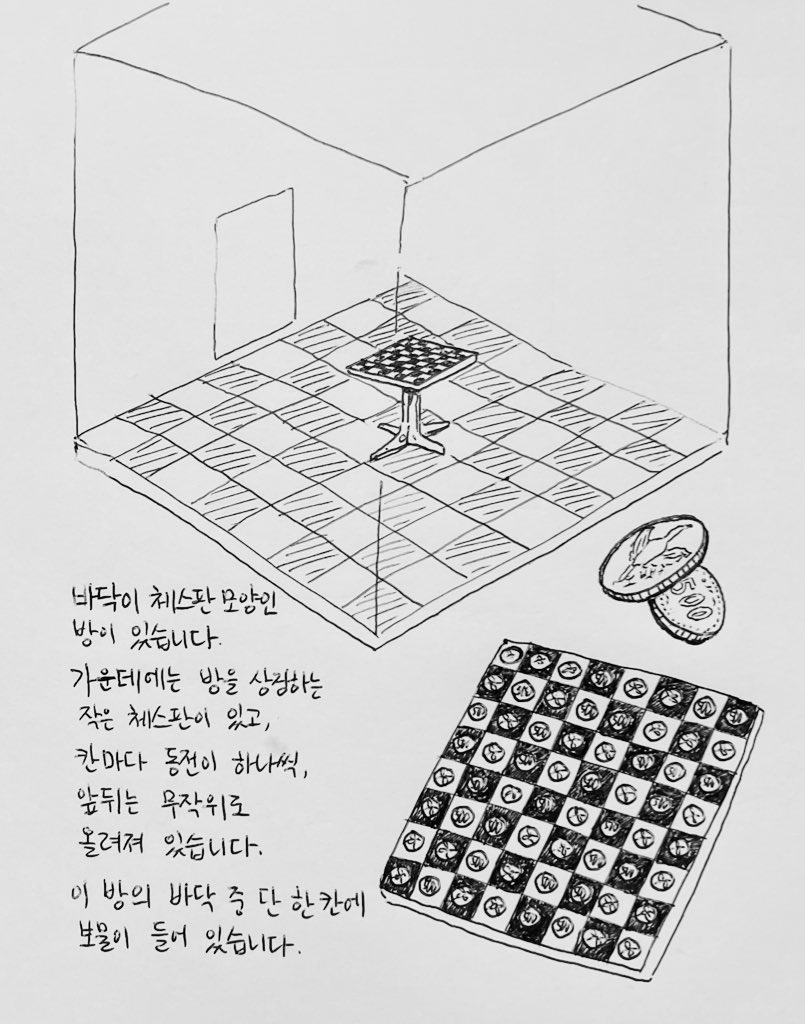 바닥이 체스판 모양인
방이 있습니다.
가운데에는 방을 상징하는
작은 체스판이 있고,
칸마다 동전이 하나씩,
앞뒤는 무작위로
올려져 있습니다.
이 방의 바닥 중 단 한 칸에
보물이 들어 있습니다.
500